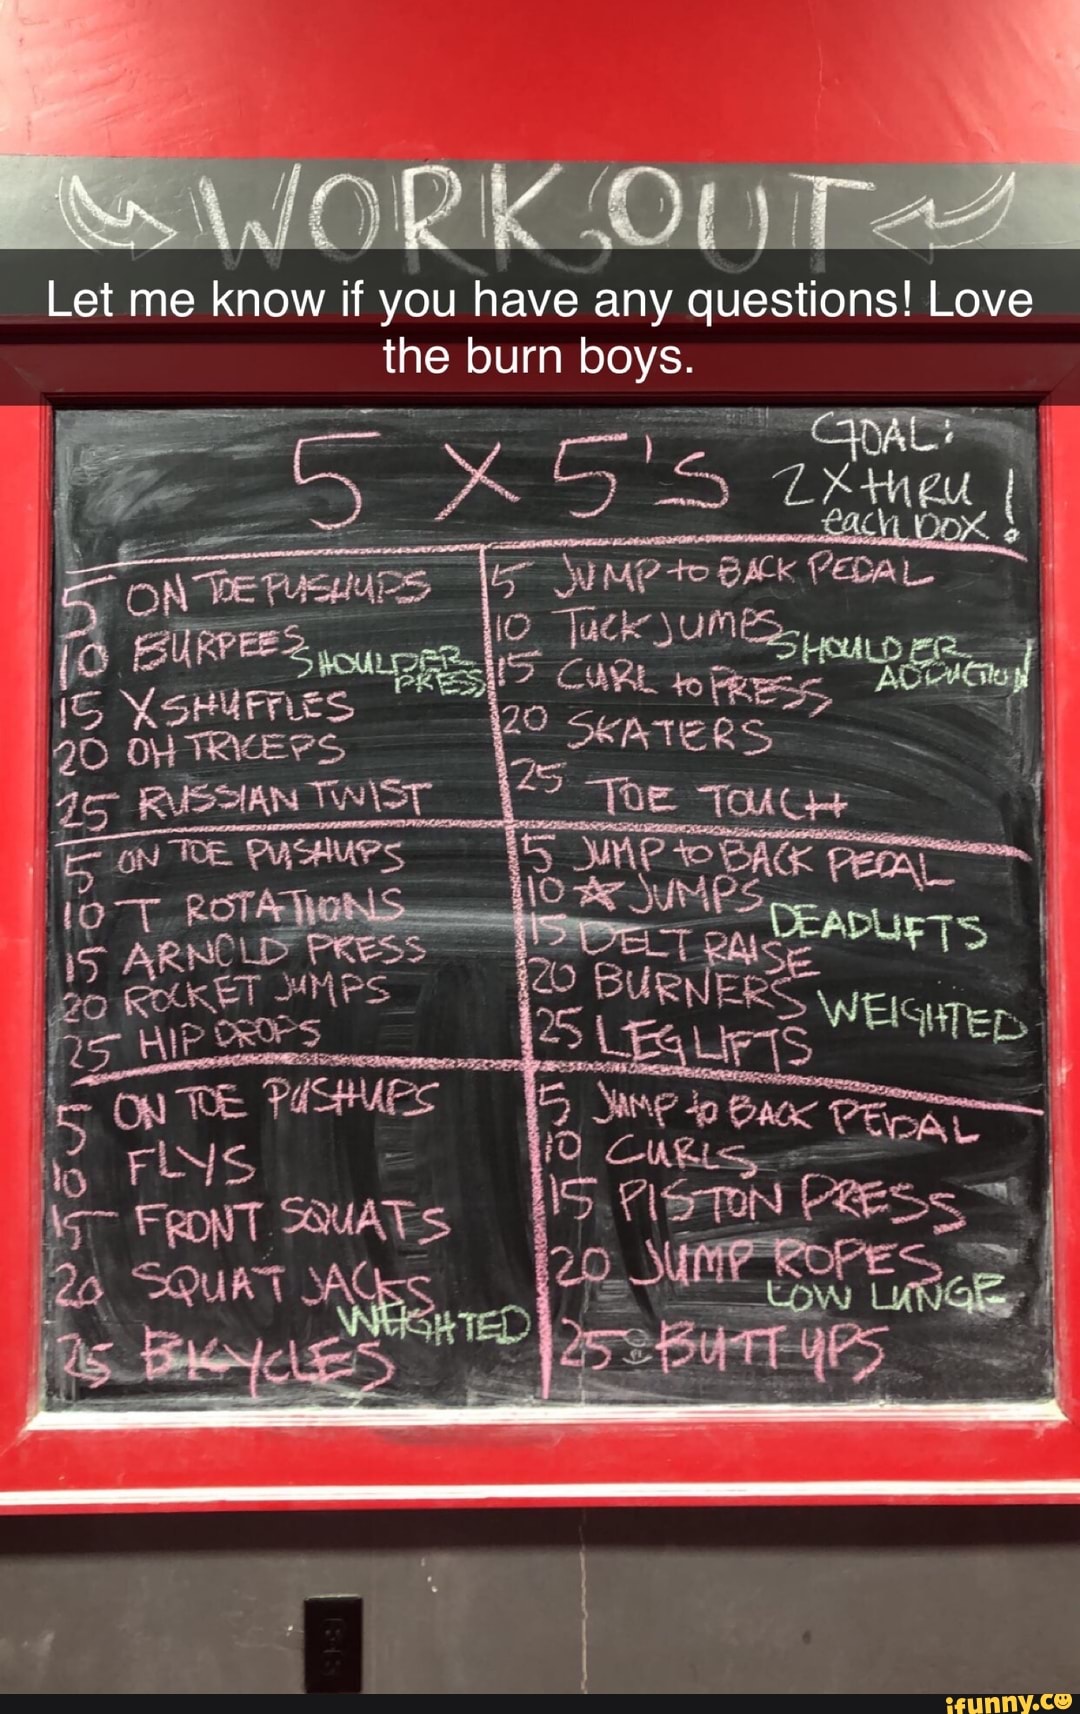 WORKOUT
Let me know if you have any questions! Love
the burn boys.
5 X 5's
GOAL:
2X thru
each box!
5 ON TOE PUSHUPS
10 BURPEES
SHOULDER
PRESS
15 X SHUFFLES
20 OH TRICEPS
25 RUSSIAN TWIST
5 JUMP to BACK PEDAL
10 TUCK JUMPS
SHOULDER
ADDUCTION
15 CURL to PRESS
20 SKATERS
25 TOE TOUCH
5 ON TOE PUSHUPS
10 T ROTATIONS
15 ARNOLD PRESS
20 ROCKET JUMPS
25 HIP DROPS
5 JUMP to BACK PEDAL
10 ☆ JUMPS
DEADLIFTS
15 DELT RAISE
20 BURNERS
WEIGHTED
25 LEG LIFTS
5 ON TOE PUSHUPS
10 FLYS
15 FRONT SQUATS
20 SQUAT JACKS
WEIGHTED
25 BICYCLES
5 JUMP to BACK PEDAL
10 CURLS
15 PISTON PRESS
20 JUMP ROPES
LOW LUNGE
25 BUTT UPS
ifunny.co